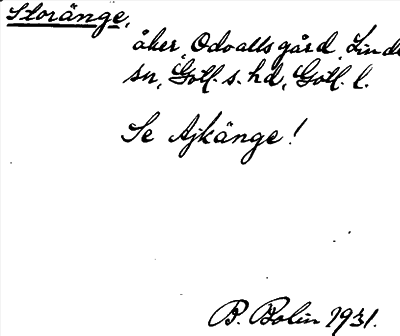 Storänge,
åker, Odvalls gård, Linde
sn, Gotl. s. hd, Gotl. l.
Se Ajkänge!
B. Bolin 1931.